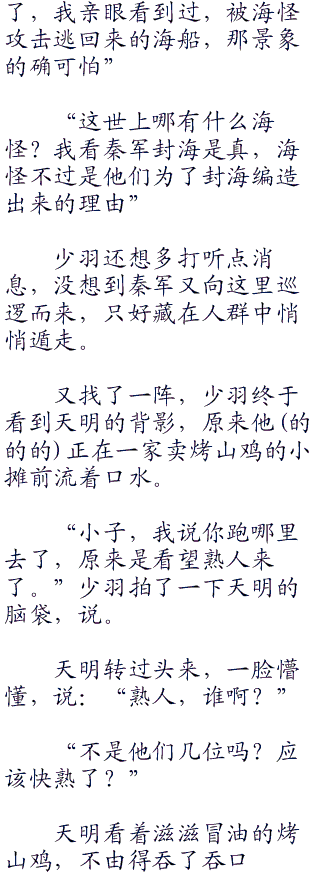 了，我亲眼看到过，被海怪
攻击逃回来的海船，那景象
的确可怕”
“这世上哪有什么海
怪？我看秦军封海是真，海
怪不过是他们为了封海编造
出来的理由”
少羽还想多打听点消
息，没想到秦军又向这里巡
逻而来，只好藏在人群中悄
悄遁走。
又找了一阵，少羽终于
看到天明的背影，原来他(的
的的)正在一家卖烤山鸡的小
摊前流着口水。
“小子，我说你跑哪里
去了，原来是看望熟人来
了。”少羽拍了一下天明的
脑袋，说。
天明转过头来，一脸懵
懂，说：“熟人，谁啊？”
“不是他们几位吗？应
该快熟了？”
天明看着滋滋冒油的烤
山鸡，不由得吞了吞口